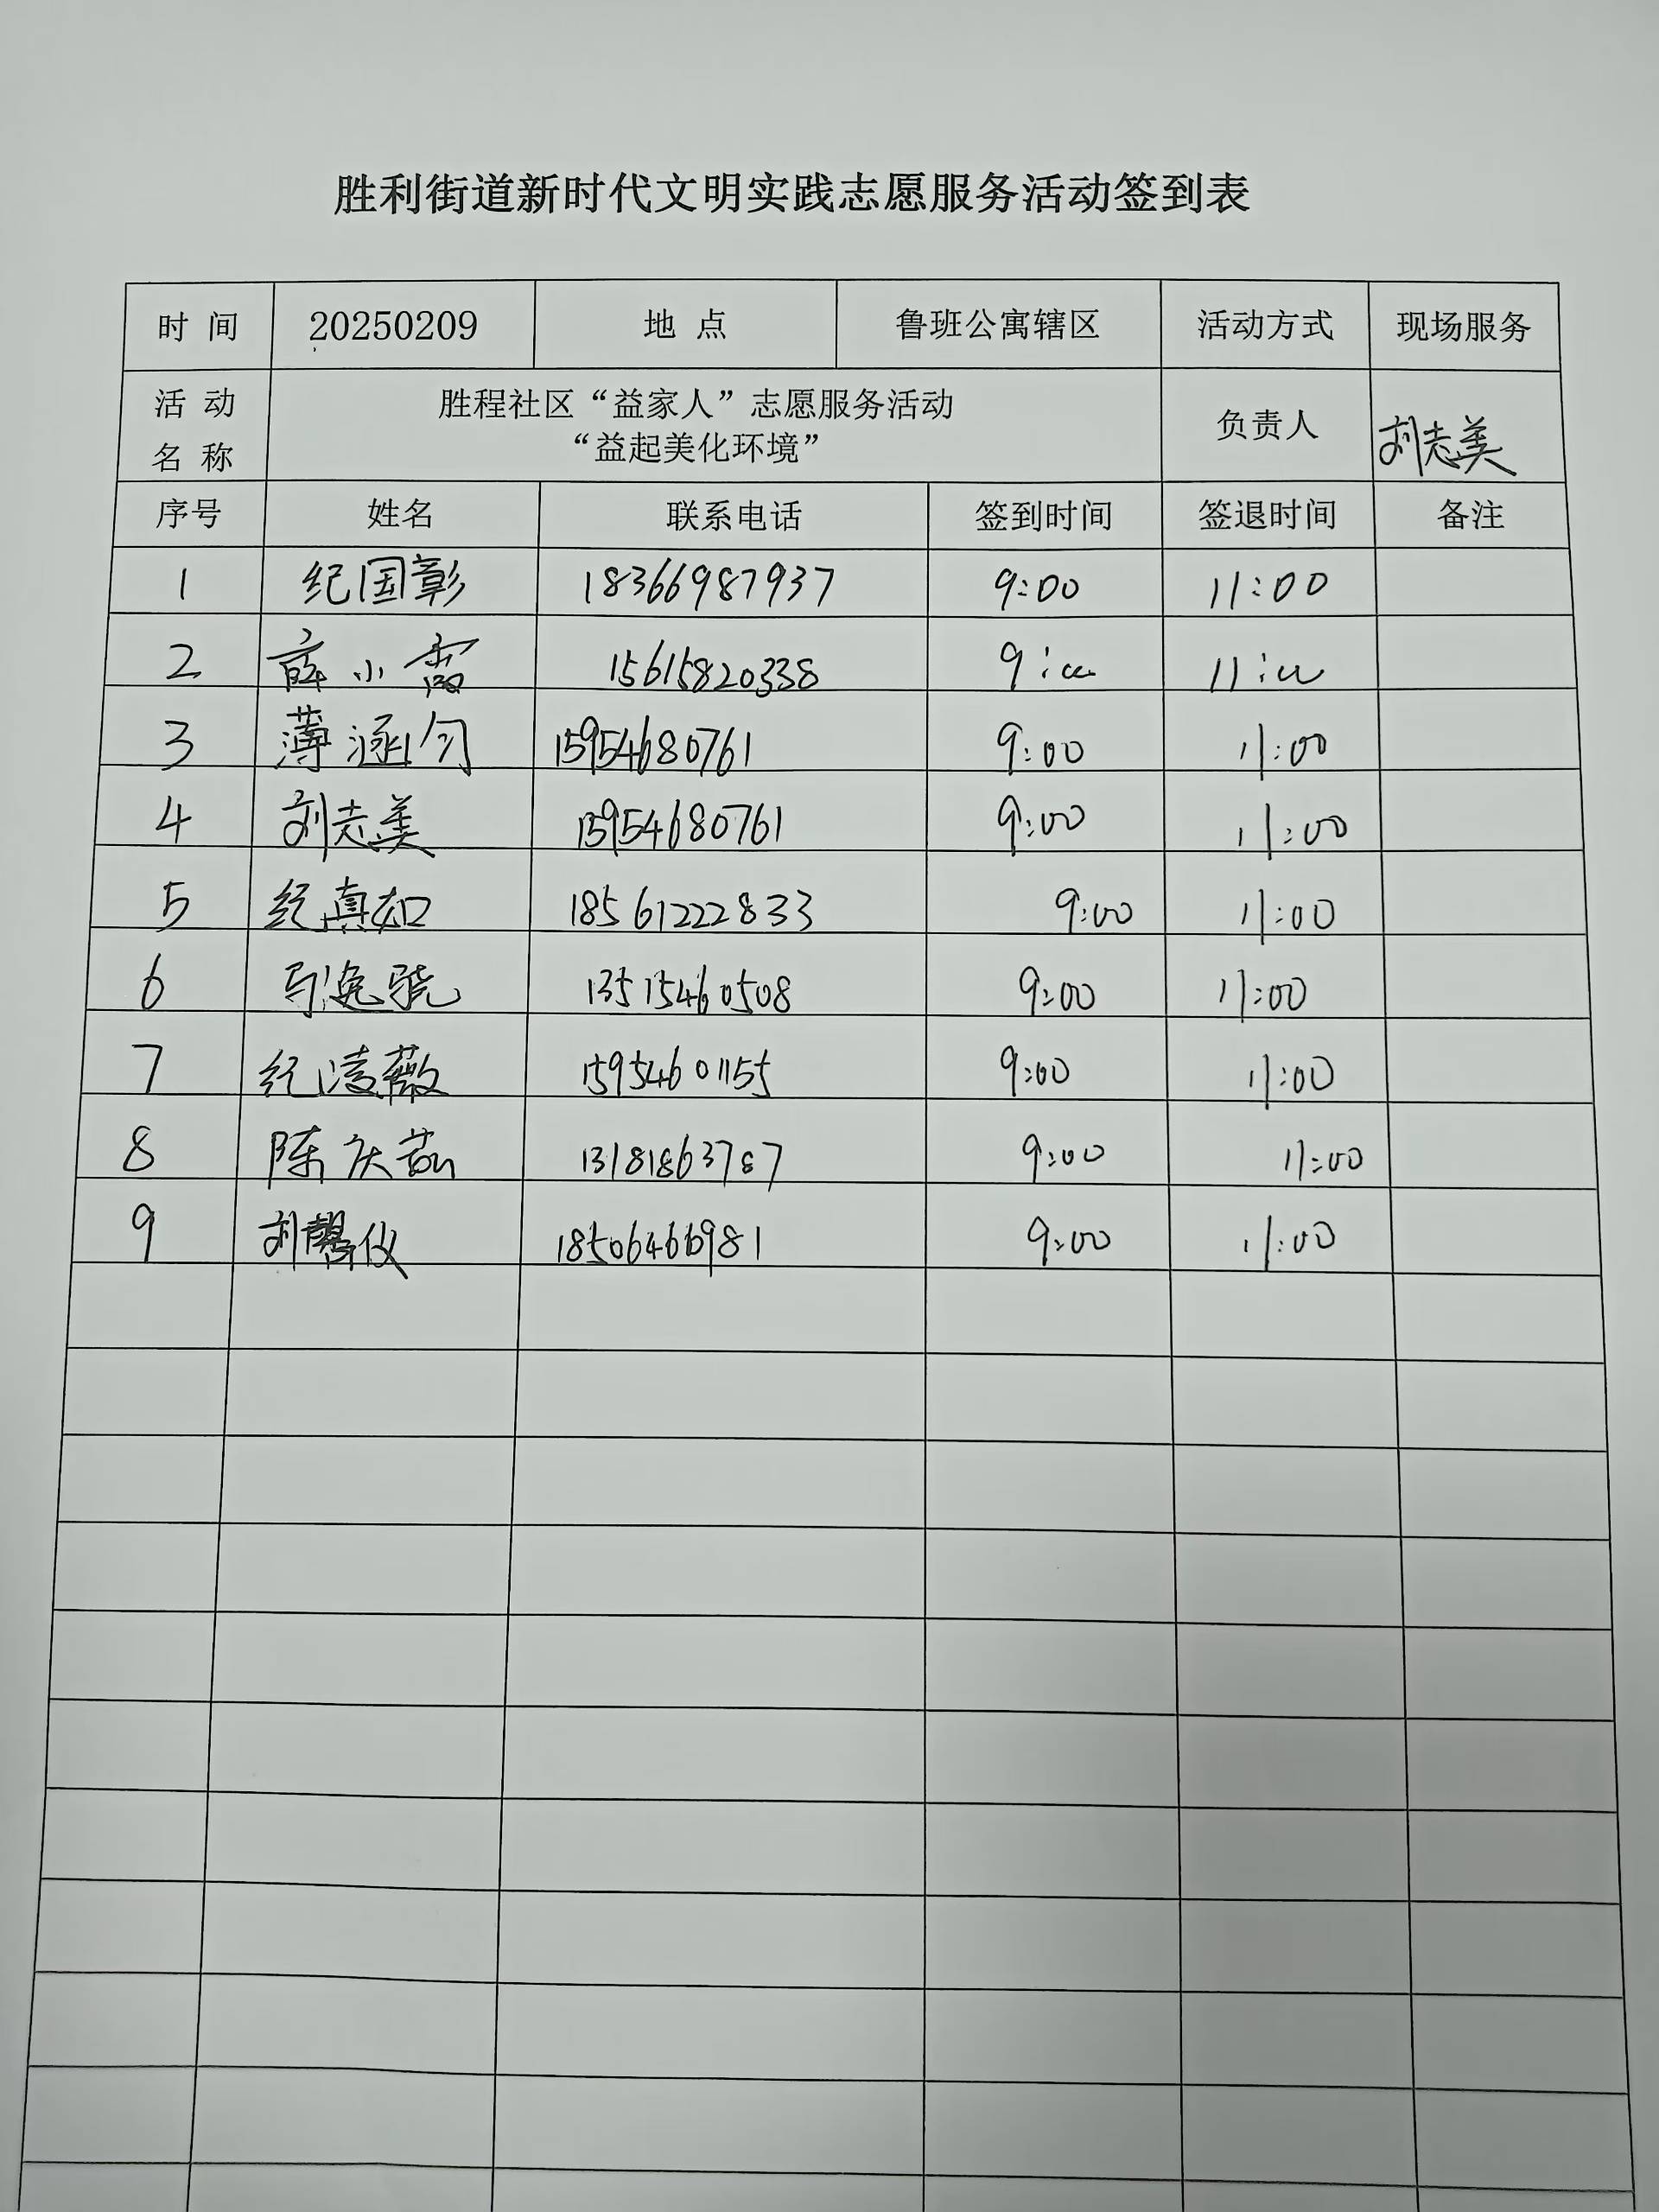 胜利街道新时代文明实践志愿服务活动签到表
时 间 20250209 地 点 鲁班公寓辖区 活动方式 现场服务
活 动 名 称 胜程社区“益家人”志愿服务活动 负责人 刘志美
“益起美化环境”
序号 姓名 联系电话 签到时间 签退时间 备注
1 纪国彰 18366987937 9:00 11:00
2 薛小霞 15615820338 9:00 11:00
3 薄涵匀 15954680761 9:00 11:00
4 刘志美 15954680761 9:00 11:00
5 纪真如 18561222833 9:00 11:00
6 马逸骁 13515460508 9:00 11:00
7 纪凌薇 15954601155 9:00 11:00
8 陈庆茹 13181863787 9:00 11:00
9 刘馨仪 18506466981 9:00 11:00